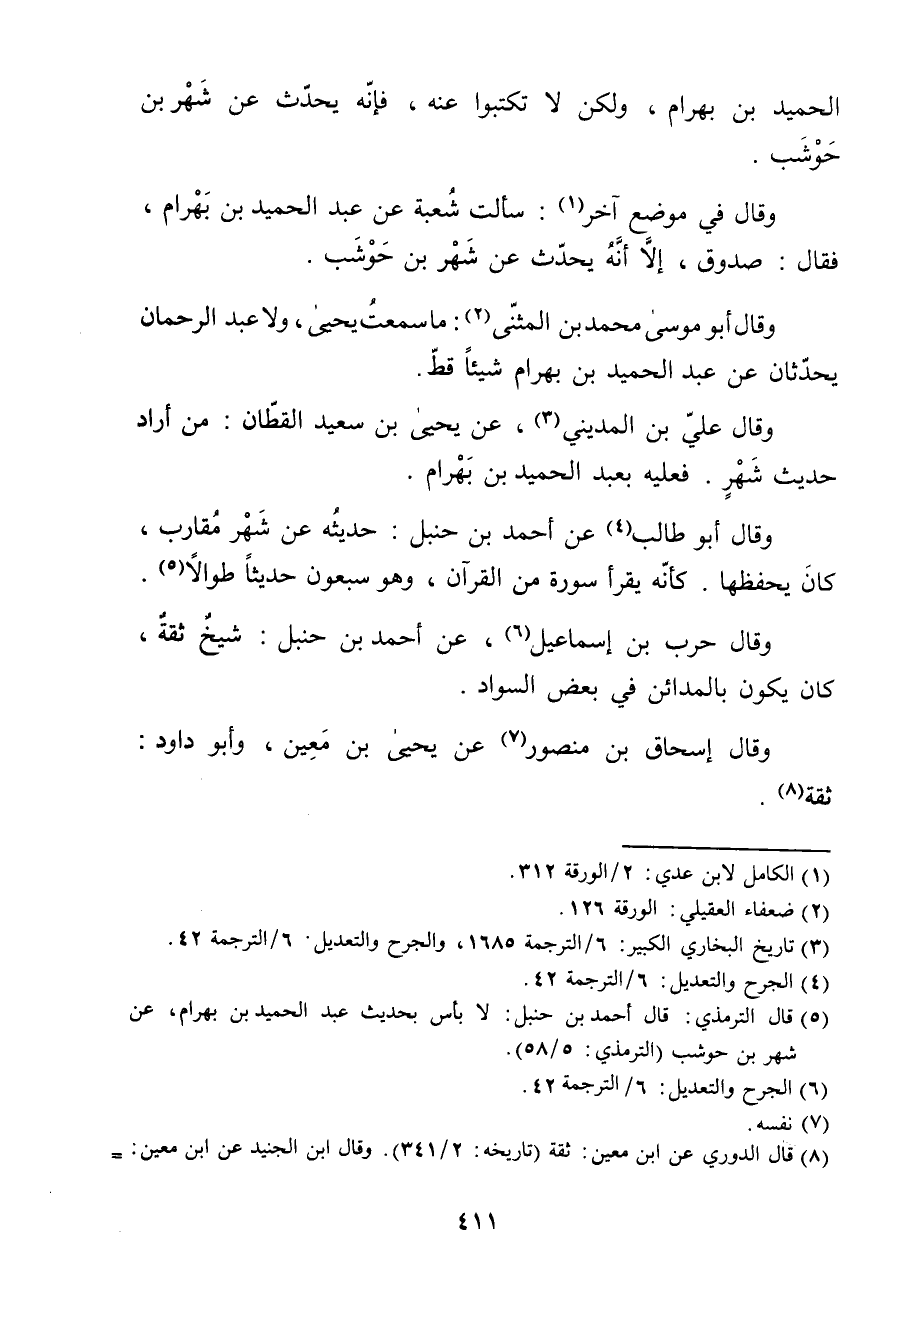 الحميد بن بهرام ، ولكن لا تكتبوا عنه ، فإنّه يحدّث عن شَهْر بن
حَوْشَب .
وقال في موضع آخر(١) : سألت شُعبة عن عبد الحميد بن بَهْرام ،
فقال : صدوق ، إلَّا أنَّهُ يحدّث عن شَهْر بن حَوْشَب .
وقال أبو موسىٰ محمد بن المثنّى(٢) : ما سمعتُ يحيىٰ ، ولا عبد الرحمان
يحدّثان عن عبد الحميد بن بهرام شيئاً قطّ .
وقال عليّ بن المديني(٣) ، عن يحيىٰ بن سعيد القطّان : من أراد
حديث شَهْرٍ . فعليه بعبد الحميد بن بَهْرام .
وقال أبو طالب(٤) عن أحمد بن حنبل : حديثُه عن شَهْر مُقارب ،
كانَ يحفظها . كأنّه يقرأ سورة من القرآن ، وهو سبعون حديثاً طوالًا(٥) .
وقال حرب بن إسماعيل(٦) ، عن أحمد بن حنبل : شيخٌ ثقةٌ ،
كان يكون بالمدائن في بعض السواد .
وقال إسحاق بن منصور(٧) عن يحيىٰ بن مَعِين ، وأبو داود :
ثقة(٨) .
(١) الكامل لابن عدي : ٢/الورقة ٣١٢ .
(٢) ضعفاء العقيلي : الورقة ١٢٦ .
(٣) تاريخ البخاري الكبير : ٦/الترجمة ١٦٨٥ ، والجرح والتعديل · ٦/الترجمة ٤٢ .
(٤) الجرح والتعديل : ٦/الترجمة ٤٢ .
(٥) قال الترمذي : قال أحمد بن حنبل : لا بأس بحديث عبد الحميد بن بهرام، عن
شهر بن حوشب (الترمذي : ٥٨/٥) .
(٦) الجرح والتعديل : ٦/ الترجمة ٤٢ .
(٧) نفسه .
(٨) قال الدوري عن ابن معين : ثقة (تاريخه : ٣٤١/٢) . وقال ابن الجنيد عن ابن معين : =
٤١١